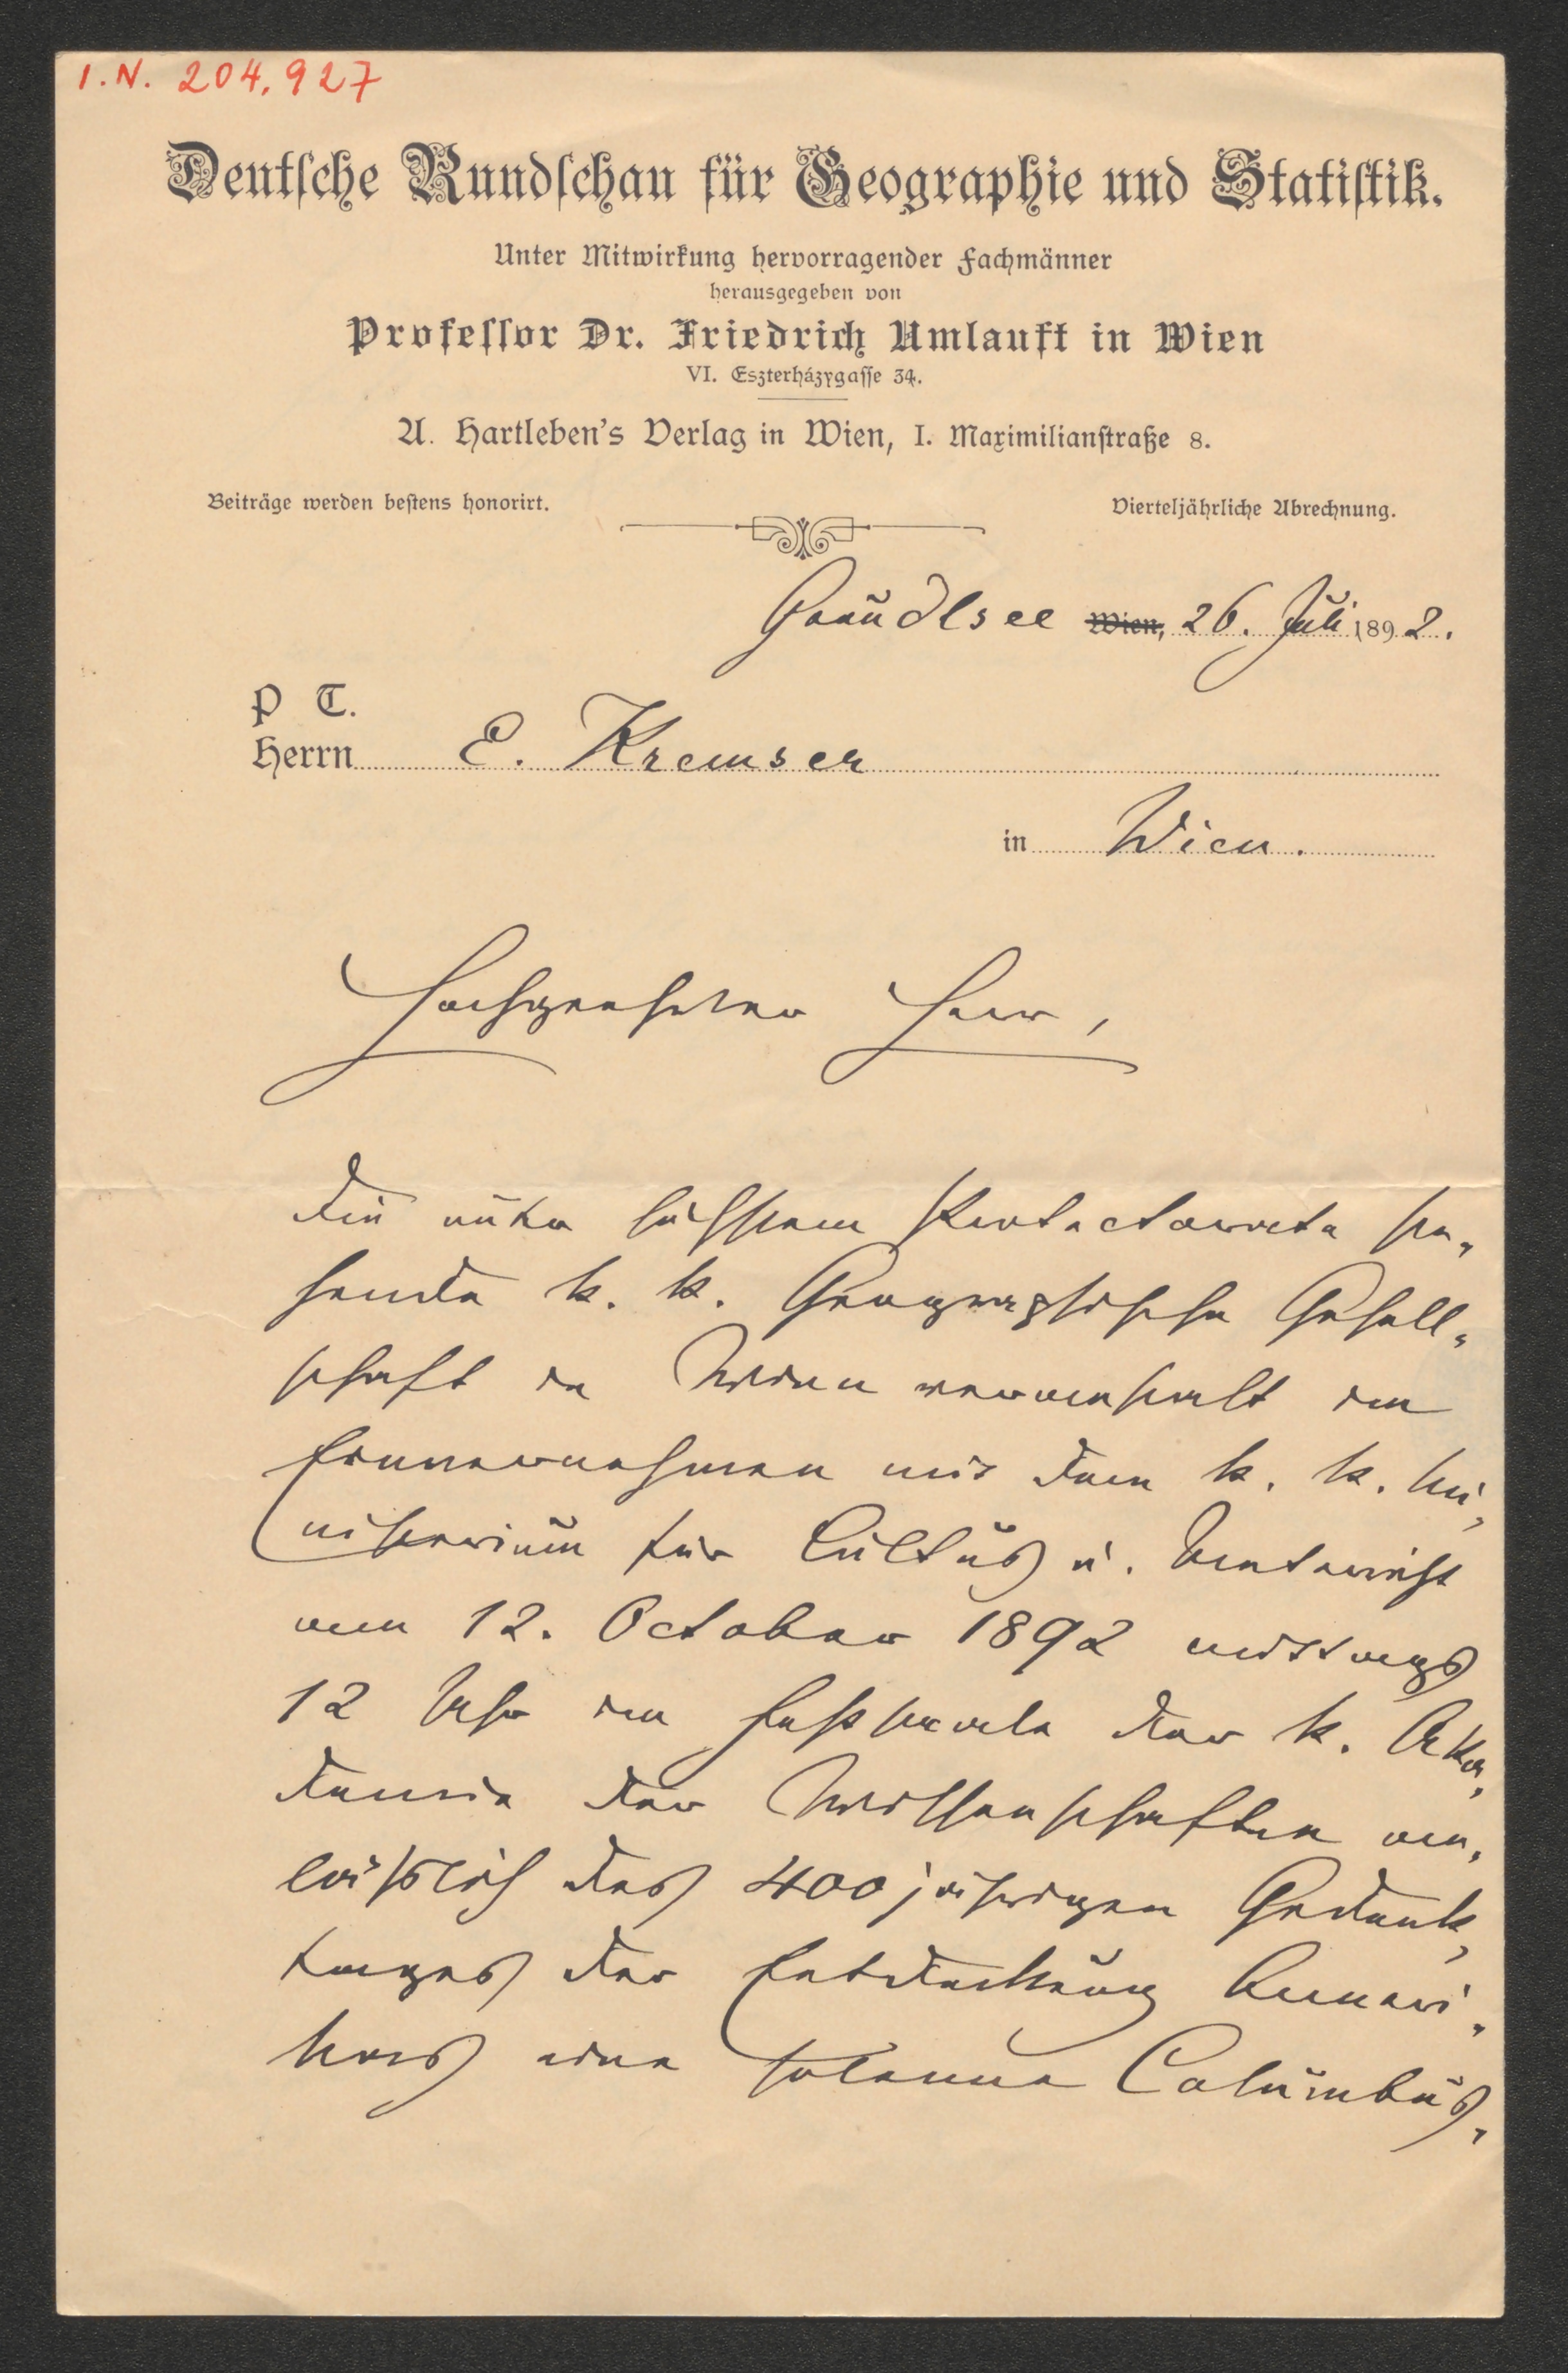 I. N. 204.927
Deutsche Rundschau für Geographie und Statistik.
Unter Mitwirkung hervorragender Fachmänner
herausgegeben von
Professor Dr. Friedrich Umlauft in Wien
VI. Eszterházygasse 34.
A. Hartleben's Verlag in Wien, I. Maximilianstraße 8.
Beiträge werden bestens honorirt. Vierteljährliche Abrechnung.
Grundlsee Wien, 26. Juli 1892.
P T.
Herrn E. Kremser
in Wien.
Hochgeehrter Herr,
Die unter höchstem Protectorate ste-
hende k. k. Geographische Gesell-
schaft in Wien veranstaltet im
Einvernehmen mit dem k. k. Mi-
nisterium für Cultus u. Unterricht
am 12. October 1892 mittags
12 Uhr im Festsaale der k. Aka-
demie der Wissenschaften an-
läßlich des 400jährigen Gedenk-
tages der Entdeckung Ameri-
kas eine solenne Columbus-